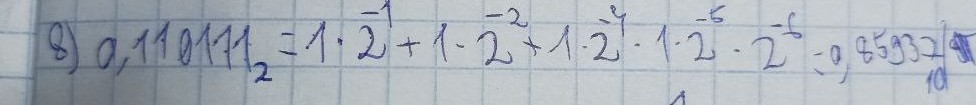 8) 0,110111₂ = 1·2⁻¹ + 1·2⁻² + 1·2⁻⁴ · 1·2⁻⁵ · 2⁻⁶ = 0,85937₁₀